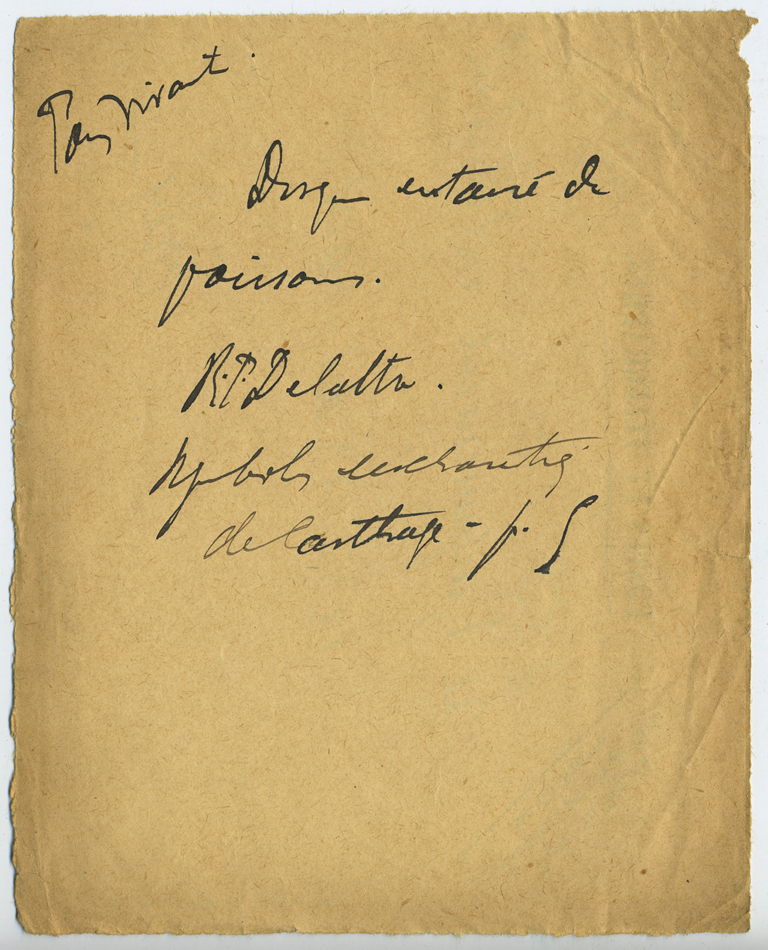 Pain vivant.
Disque entouré de
poissons.
R.P. Delattre.
Symboles eucharistiq
de Carthage - p. 5